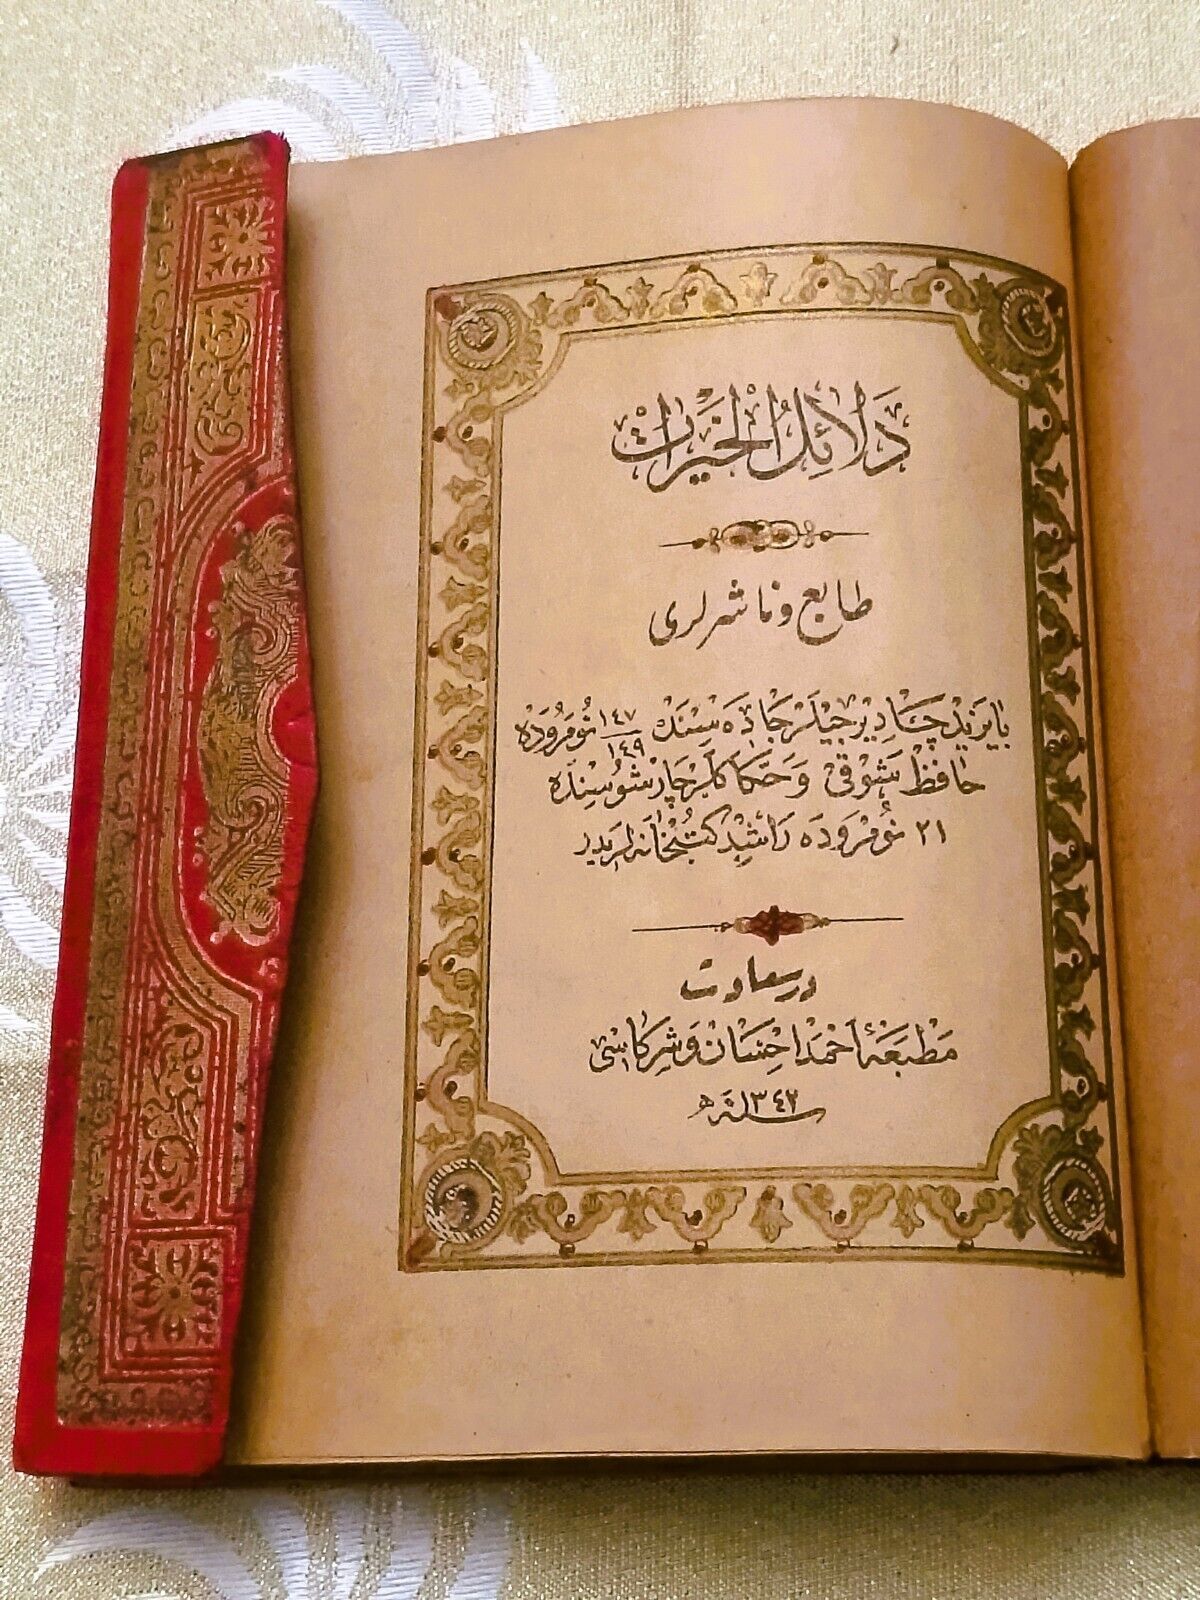 دَلَائِلُ الْخَيْرَاتْ
طابع و ناشرلری
بايزيد چاديرجيلر جاده سنده ١٤٧/١٤٩ نومروده
حافظ شوقی و حكاكلر چارشوسنده
٢١ نومروده راشد كتبخانه لريدر
درسعادت
مطبعهٔ احمد احسان و شركاسی
سنه ١٣٤٢